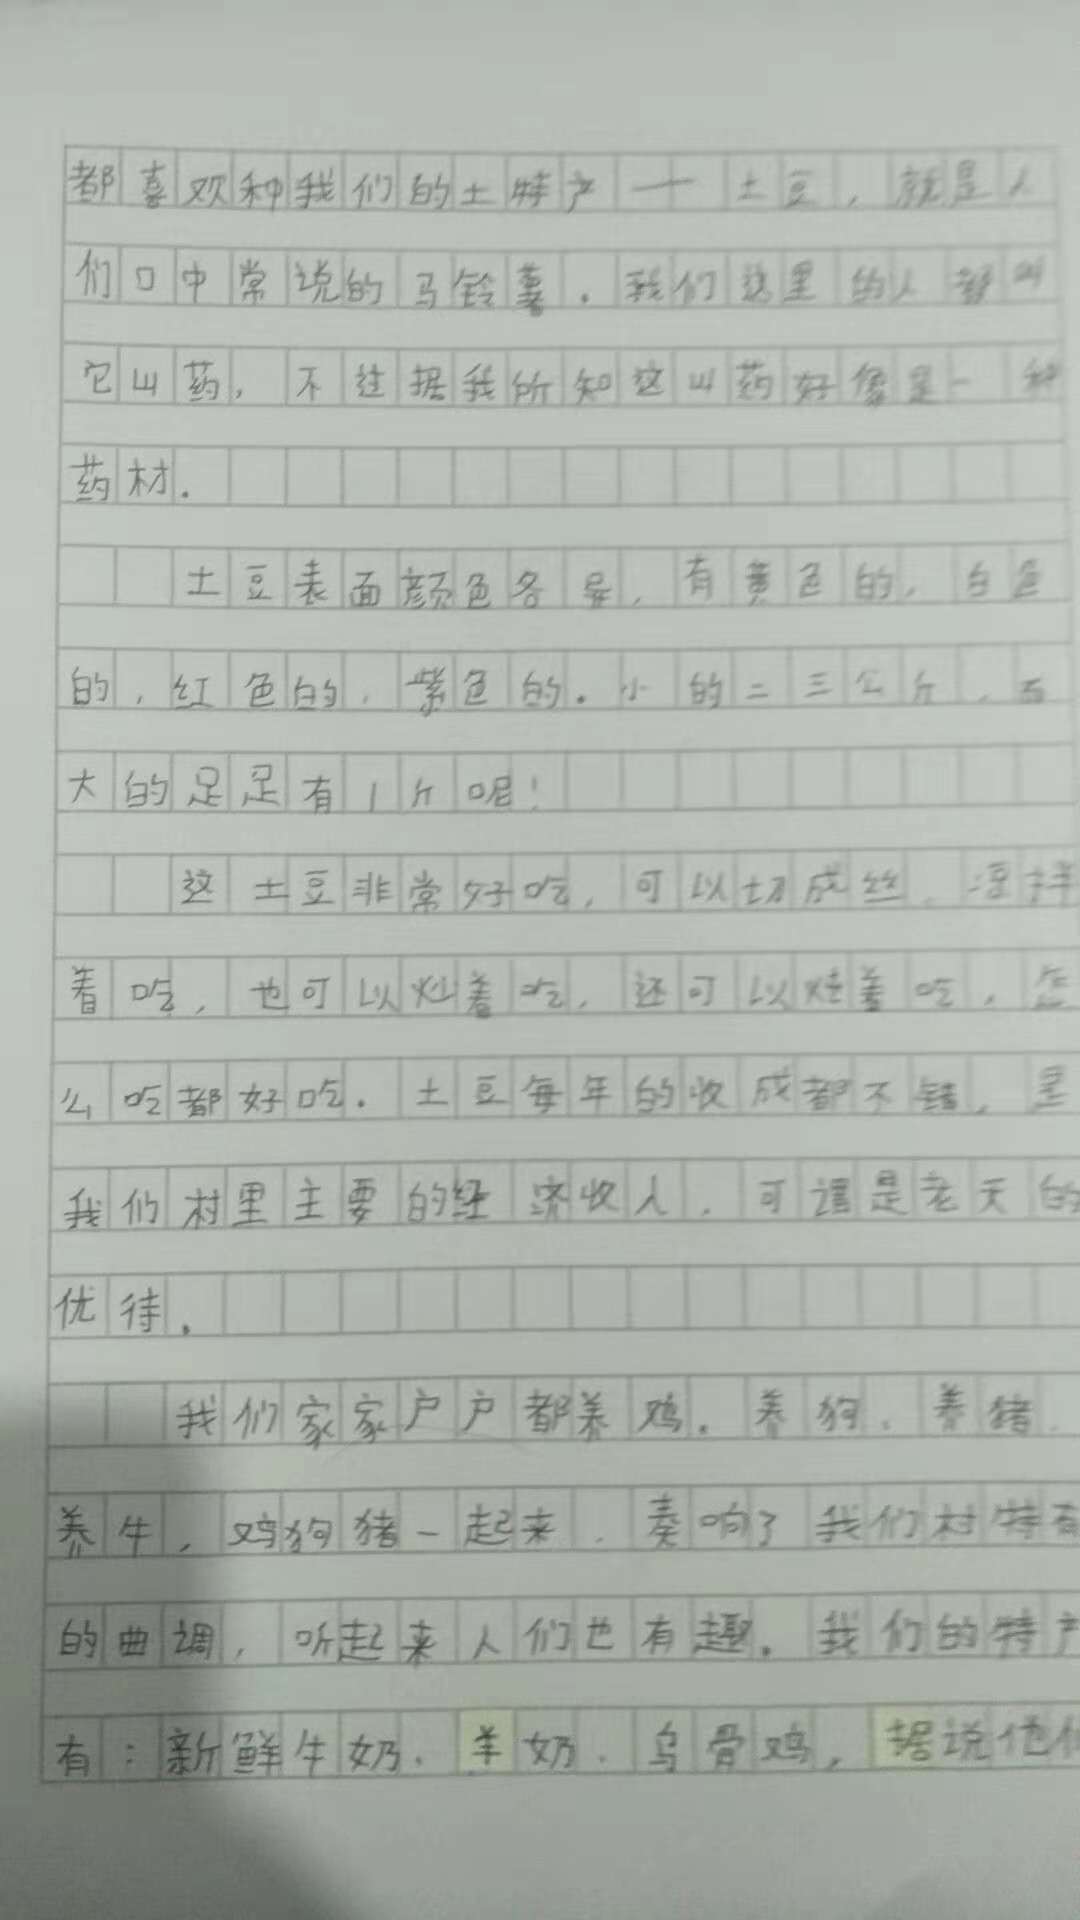 都喜欢种我们的土特产——土豆，就是人
们口中常说的马铃薯。我们这里的人都叫
它山药，不过据我所知这山药好像是一种
药材。
土豆表面颜色各异，有黄色的，白色
的，红色的，紫色的。小的二三公斤，
大的足足有1斤呢！
这土豆非常好吃，可以切成丝，拌
着吃，也可以炒着吃，还可以烧着吃，怎
么吃都好吃。土豆每年的收成都不错，是
我们村里主要的经济收入，可谓是老天的
优待。
我们家家户户都养鸡，养狗，养猪，
养牛，鸡狗猪一起来，奏响了我们村特有
的曲调，听起来人们也有趣。我们的特产
有：新鲜牛奶、羊奶、乌骨鸡，据说他们